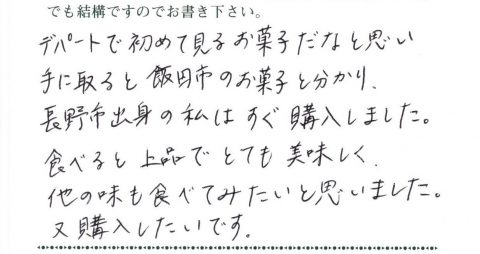 でも結構ですのでお書き下さい。
デパートで初めて見るお菓子だなと思い
手に取ると飯田市のお菓子と分かり、
長野市出身の私はすぐ購入しました。
食べると上品でとても美味しく、
他の味も食べてみたいと思いました。
又購入したいです。